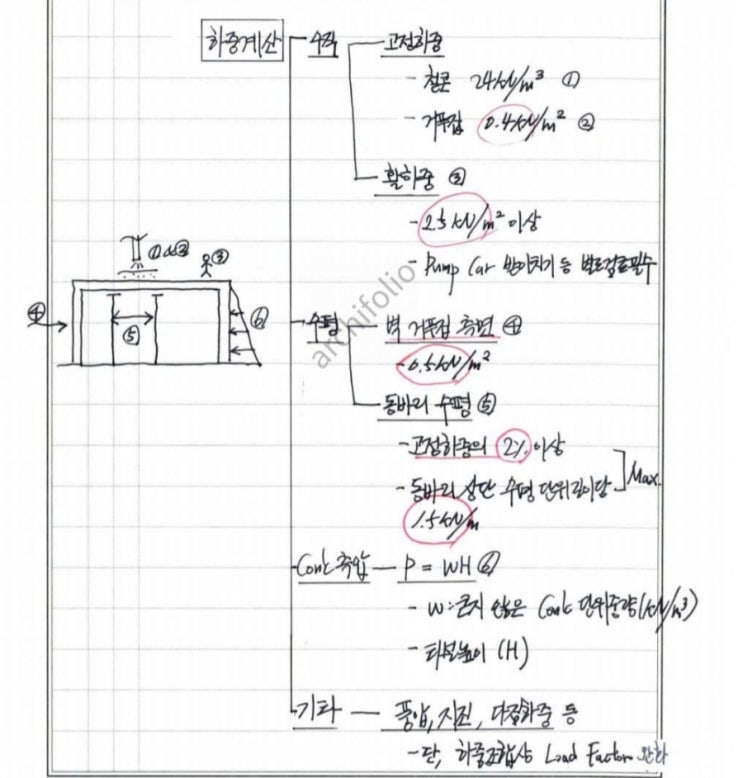 하중계산
수직
고정하중
- 철콘 24kN/m³ ①
- 거푸집 0.4kN/m² ②
활하중 ③
- 2.5kN/m² 이상
- Pump Car 받아치기 등 별도검토필수
①②③
④
⑤
⑥
수평
벽 거푸집 측면 ④
- 0.5kN/m²
동바리 수평 ⑤
- 고정하중의 2% 이상
- 동바리 상단 수평 단위길이당
1.5kN/m
Max.
Conc 측압 — P = WH ⑥
- W : 굳지 않은 Conc 단위중량(kN/m³)
- 타설높이 (H)
기타 — 풍압, 지진, 다짐하중 등
- 단, 하중조합상 Load Factor 완화
archifolio